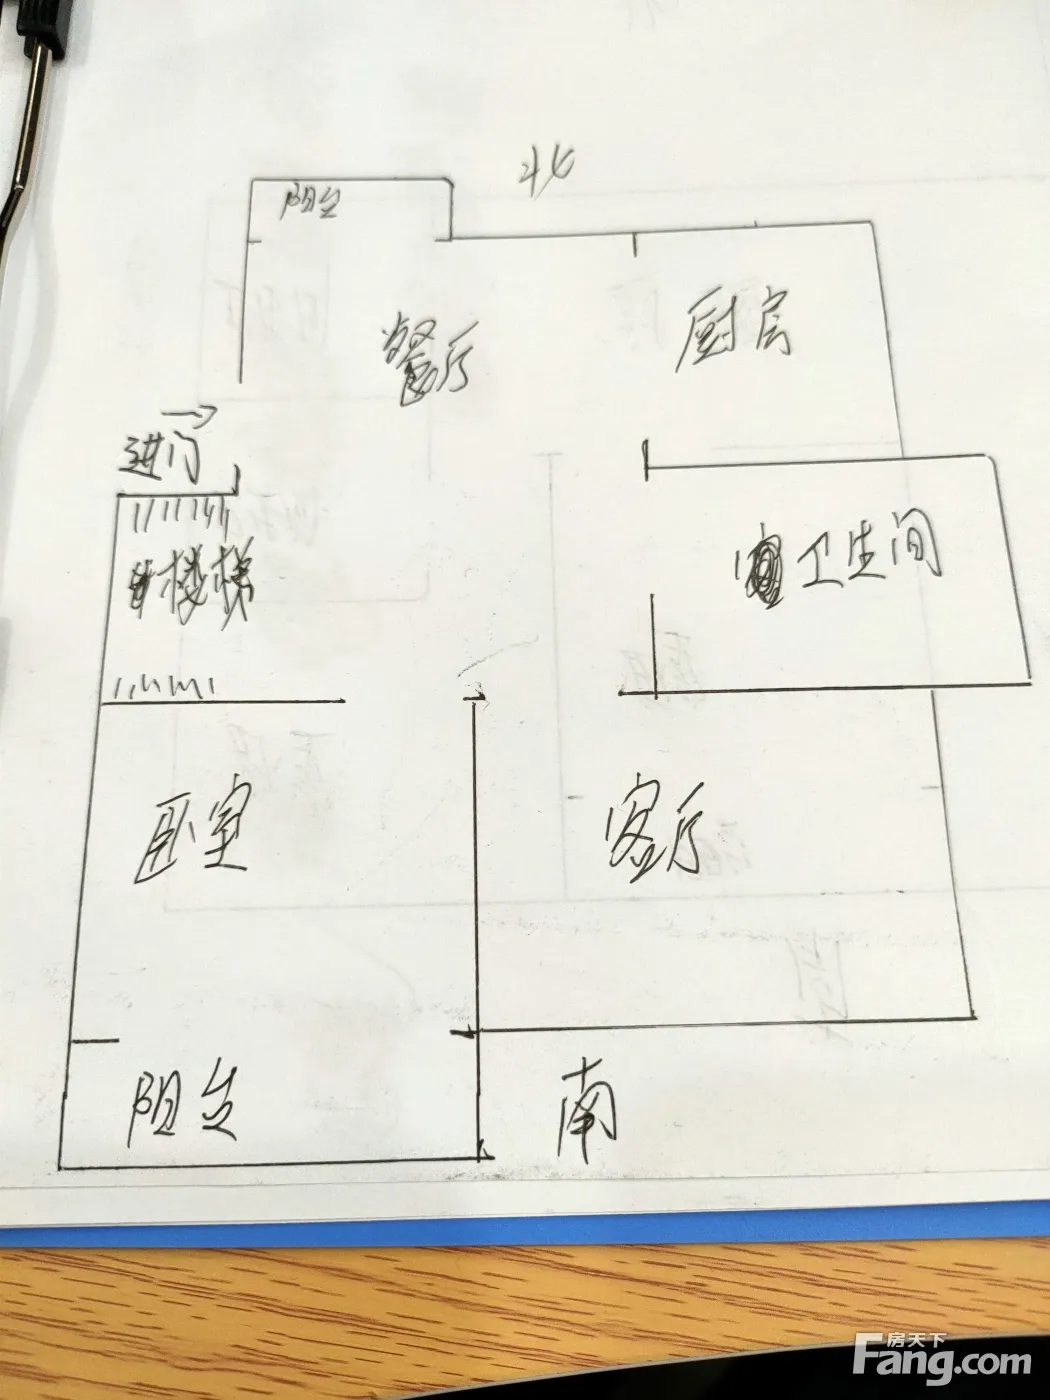 北
阳台
餐厅
厨房
进门
楼梯
卫生间
卧室
客厅
阳台
南
房天下
Fang.com